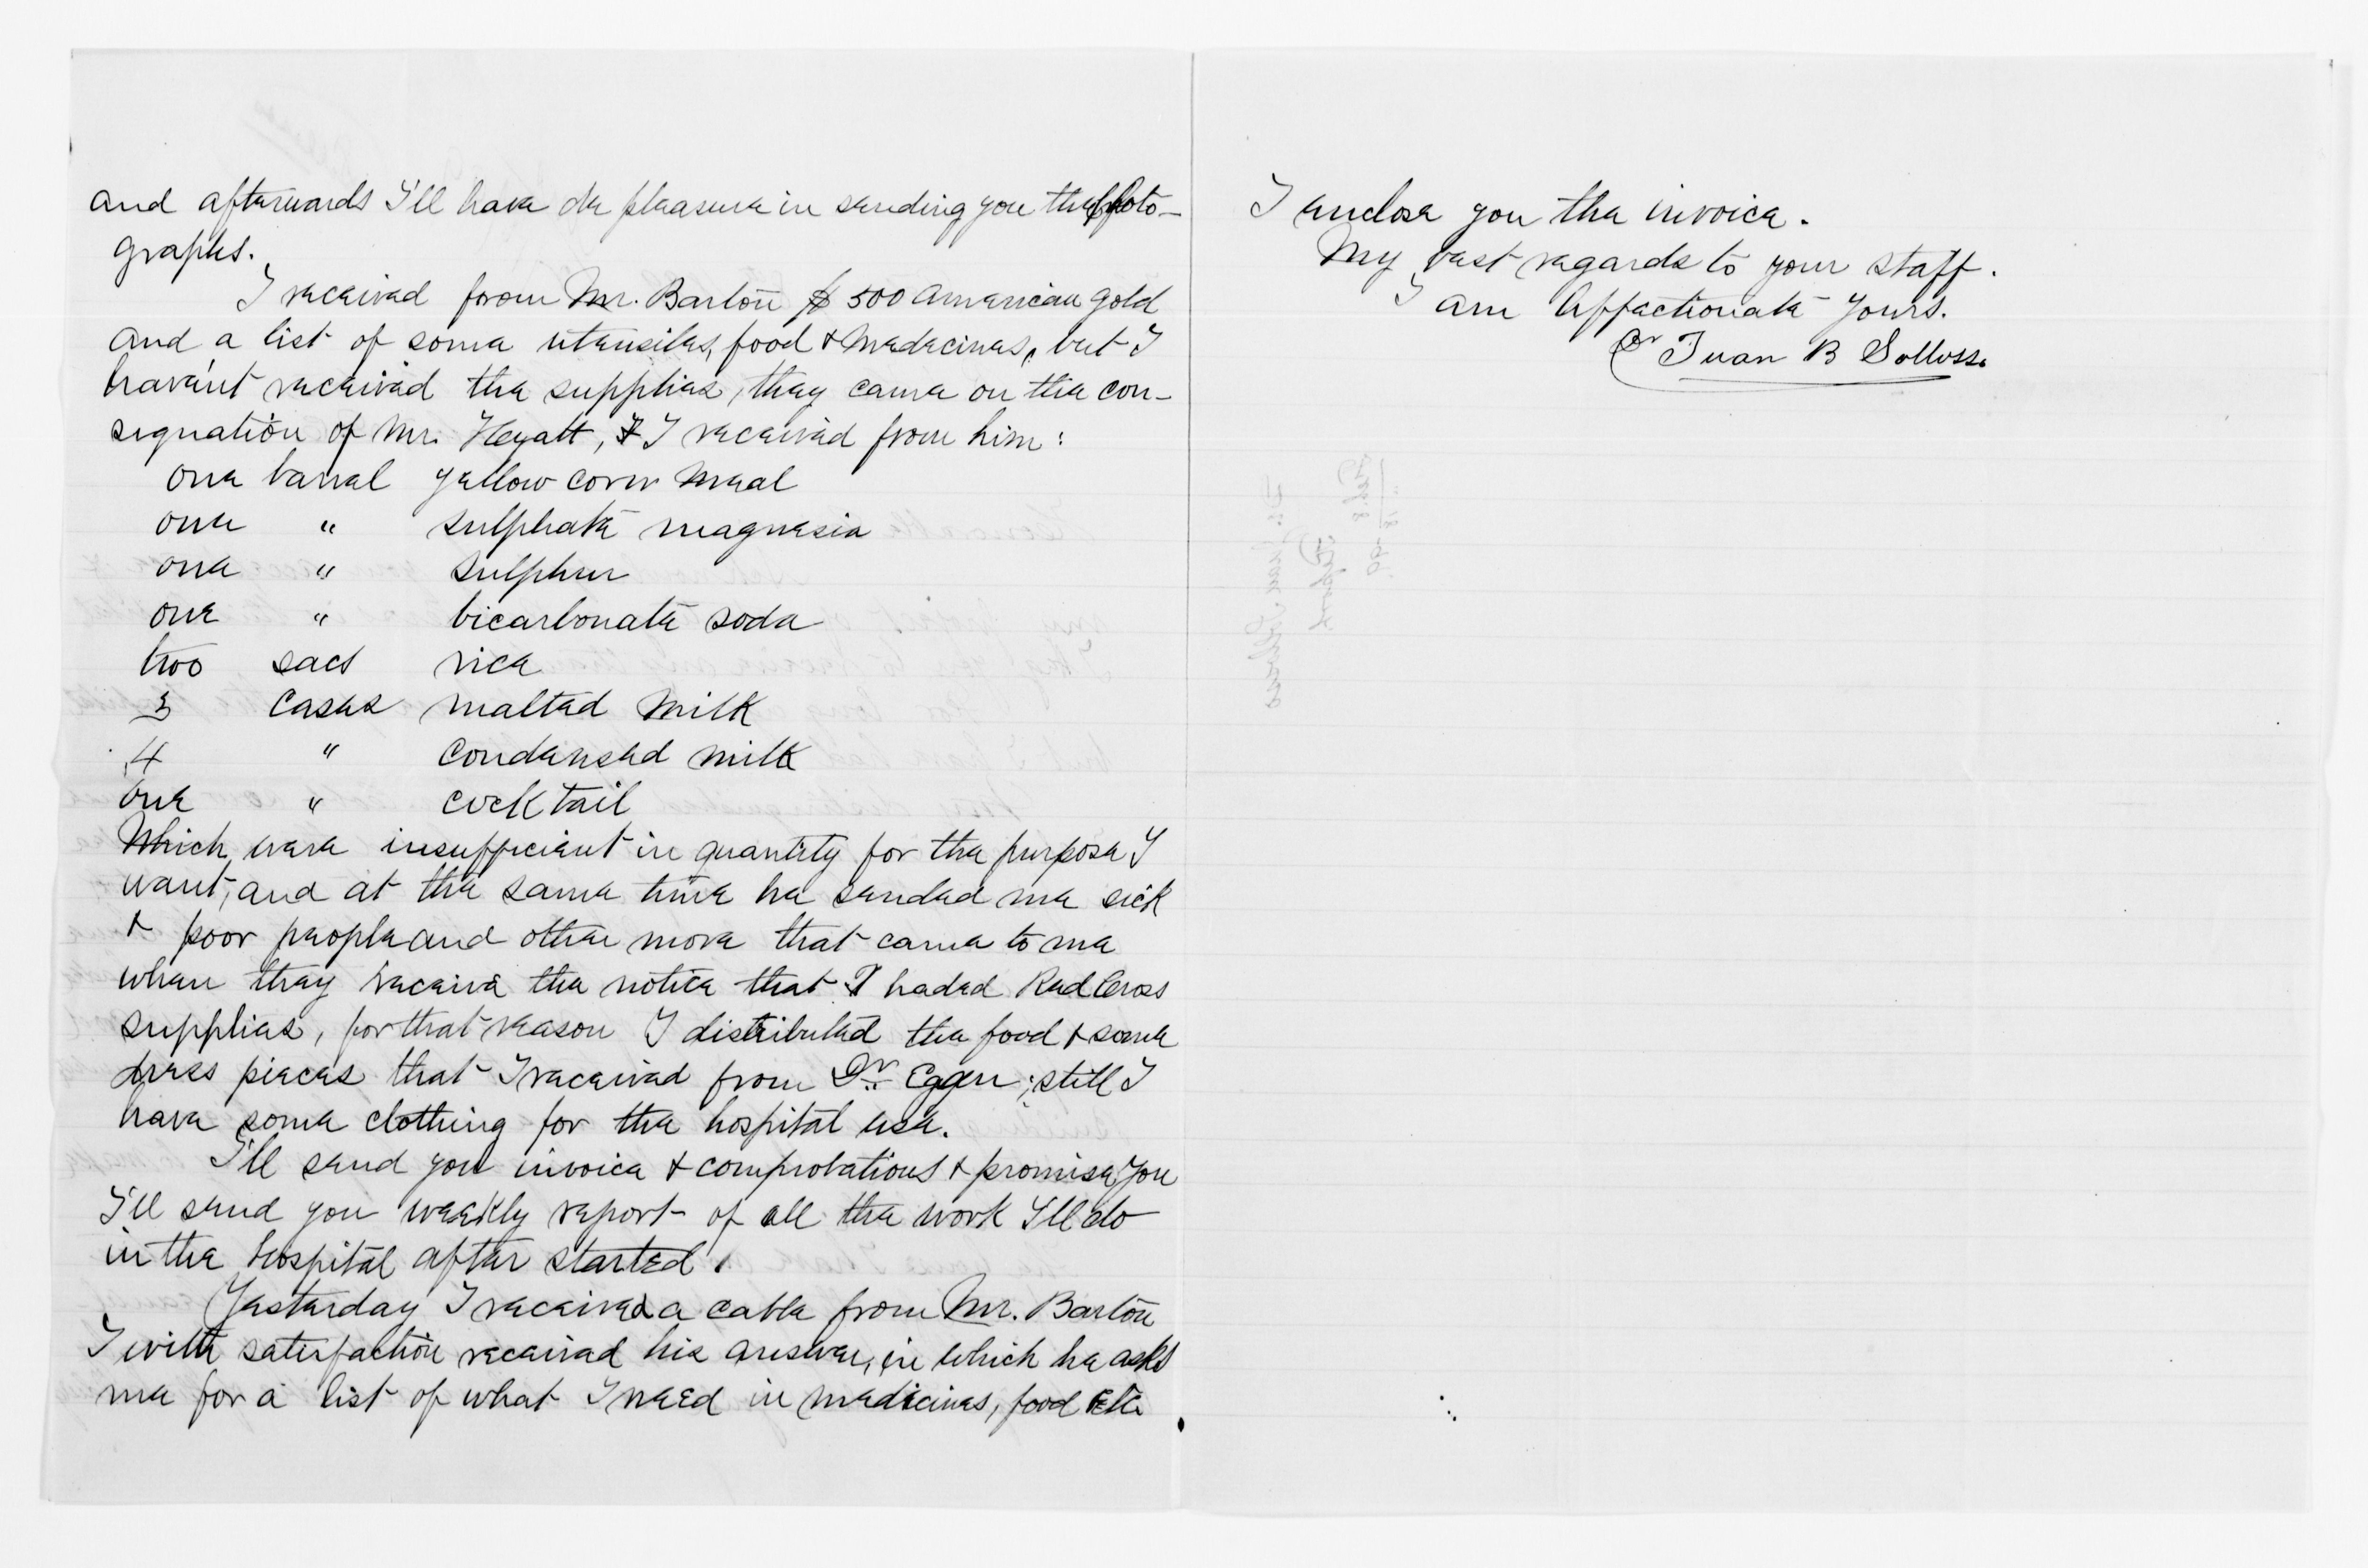 and afterwards I'll have de pleasure in sending you the photo-
graphs.
I received from Mr. Barton $ 500 american gold
and a list of some utensiles, food & medecines, but I
haven't received the supplies, they came on the con-
signation of Mr. Hyatt, I received from him:
one barrel yellow corn meal
one " sulphate magnesia
one " sulphur
one " bicarbonate soda
two sacs rice
3 cases malted milk
4 " condensed milk
one " cocktail
Which were insufficient in quantity for the purpose I
want, and at the same time he sended me sick
& poor people and other more that came to me
when they receive the notice that I haded Red Cross
supplies, for that reason I distributed the food & some
dress pieces that I received from Dr. Egan; still I
have some clothing for the hospital use.
I'll send you invoice & comprobations & promise you
I'll send you weekly report of all the work I'll do
in the hospital after started.
Yesterday I received a cable from Mr. Barton
I with satisfaction received his answer, in which he asks
me for a list of what I need in medicines, food etc.
I enclose you the invoice.
My best regards to your staff.
I am affectionate yours.
Dr Juan B Sollosso